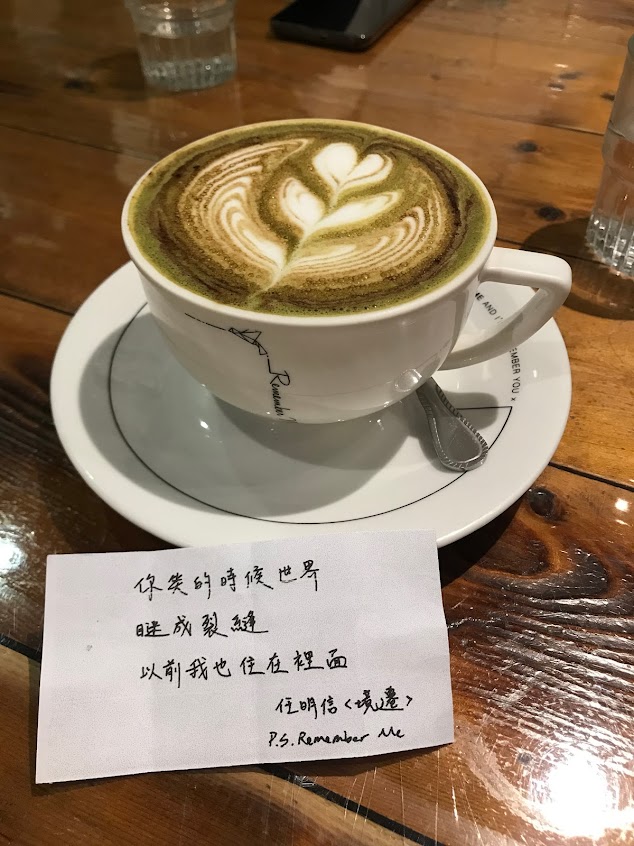 Remember
ME AND I'
EMBER YOU x
你笑的時候世界
瞇成裂縫
以前我也住在裡面
任明信〈境遷〉
P.S. Remember Me